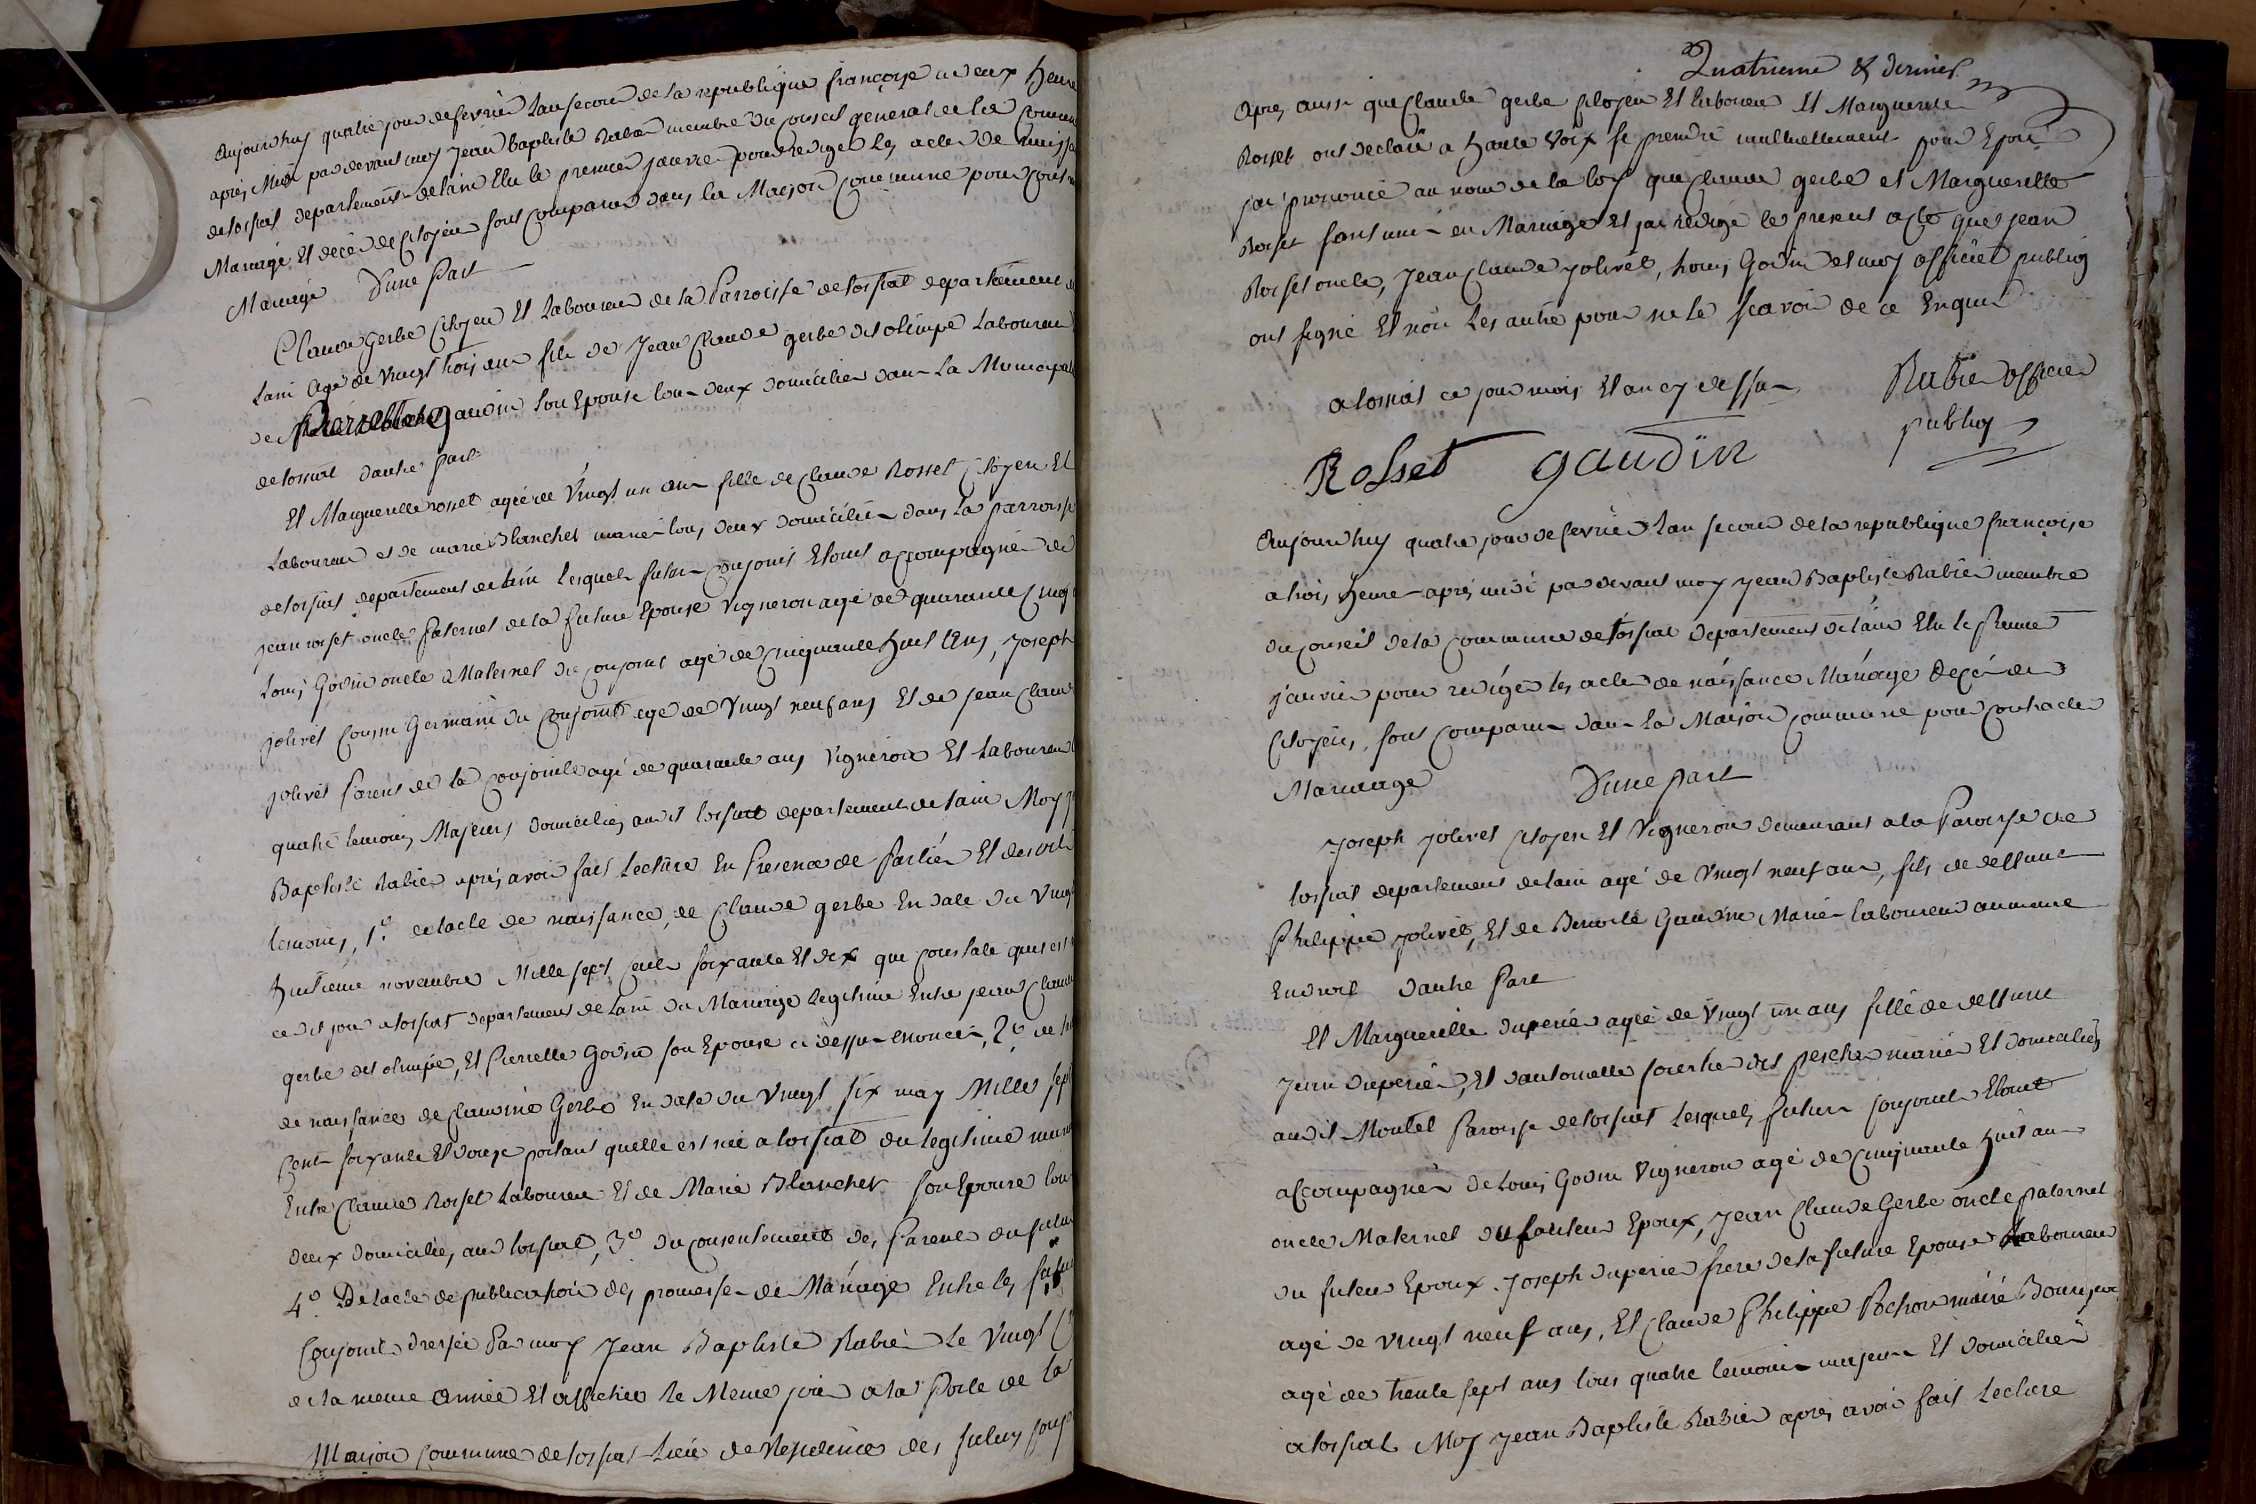 Aujourdhuy quatre jour de fevrier Lan second de la republique françoise a deux heure
après Midy par devant moy Jean Baptiste Rabier membre du conseil general de la commune
de torsiat departement de lain Elu le premier janvier pour rediger les actes de naissa
Mariage Et decés de Citoyen sont comparus dans la Maison commune pour contra
Mariage D'une Part
Claude Gerbe Citoyen Et Laboureur de la Parroisse de torsiat departement de
Lain Agé de Vingt trois ans fils de Jean Claude gerbe dit olimpe Laboureur
de gaudin son Epouse tous deux domiciliés dans La Municipal
de torsiat dautre part
Et Marguerite rosset agée de Vingt un ans fille de Claude Rosset Citoyen Et
Laboureur et de marie Blanchet marié tous deux domicilié dans La parroisse
de torsiat departement de Lain Lesquels futurs conjoints Etoient accompagné de
jean rosset oncle Paternel de la future Epouse vigneron agé de quarante cinq
Louis Godin oncle Maternel du conjoint agé de Cinquante huit Ans, Joseph
jolivet Cousin Germain du Conjoint agé de Vingt neuf ans Et de Jean Claude
jolivet Parent de la Conjointe agé de quarante ans Vigneron Et Laboureur
quatre temoins Majeurs domiciliés audit torsiat departement de Lain Moy J
Baptiste Rabier après avoir fait Lecture En Presence de Parties Et desdits
temoins, 1.º de lacte de naissance, de Claude gerbe En date du Vingt
huitieme novembre Mille sept Cent soixante Et dix qui constate quil est
ce dit jour a torsiat departement de Lain du Mariage Legitime Entre jean Claude
gerbe dit olimpe, Et Pierrette Godin son Epouse ci dessus enoncés, 2º de l
de naissance de Claudine Gerbe En date du Vingt six may Mille sept
Cent soixante Et douze portant quelle est née a torsiat du Legitime maria
Entre Claude Rosset Laboureur Et de Marie Blanchet son Epouse tous
deux domiciliés aud torsiat, 3º du consentement des Parents du futur
4º De lacte de publication des promesses de Mariage Entre les futur
Conjoints dressée Par moy Jean Baptiste Rabier Le Vingt C
de la meme Année Et affichée Le Meme jour a la Porte de La
Maison Commune de torsiat Lieu de Residence des futurs conj
Quatrieme & dernier
après aussi que Claude gerbe Citoyen Et Laboureur Et Marguerite
Rosset ont declaré a haute Voix se prendre mutuellement pour Epoux
jai prononcé au nom de la loy que Claude gerbe et Marguerite
Rosset sont uni en Mariage Et jai redigé le present acte que jean
Rosset oncle, Jean Claude jolivet, Louis Godin et moy officier public
ont signé Et non les autre pour ne le sçavoir de ce Enquis
a torsiat ce jour mois Et an cy dessus
Rabier officier
public
Rosset gaudin
Aujourdhuy quatre jour de fevrier Lan second de la republique françoise
a trois heure après midi par devant moy Jean Baptiste Rabier membre
du conseil de la Commune de torsiat Departement de Lain Elu le Premie
janvier pour rediger les acte de naissance Mariage Decés de
Citoyens, sont comparu dans La Maison Commune pour contracter
Mariage D'une part
Joseph jolivet Citoyen Et Vigneron demeurant a la Paroisse de
torsiat departement de lain agé de Vingt neuf ans, fils de deffunt
Philippe jolivet, Et de Benoite Gaudin Mariés laboureur au meme
Endroit dautre Part
Et Marguerite duperier agée de Vingt un ans fille de deffunt
jean duperier, Et dantoinette dit marié Et domiciliés
audit Montel Paroisse de torsiat Lesquels futur Conjoints Etoient
accompagnés de Louis Godin Vigneron agé de Cinquante huit ans
oncle Maternel du futur Epoux, Jean Claude Gerbe oncle paternel
du futur Epoux. Joseph duperier frere de la future Epouse Laboureur
agé de vingt neuf ans, Et Claude Philippe Pochon
agé de trente sept ans tous quatre temoins majeurs Et domiciliés
a torsiat Moy Jean Baptiste Rabier après avoir fait Lecture